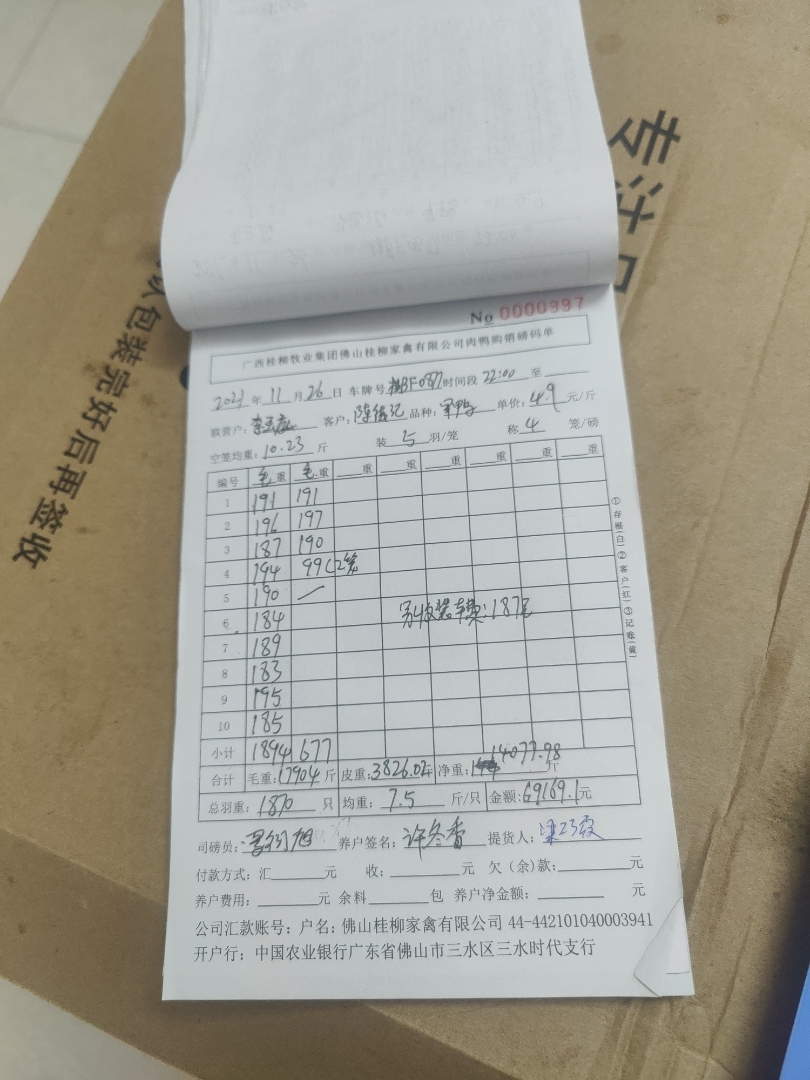 专
认包装完好后再签收
No 0000997
广西桂柳牧业集团佛山桂柳家禽有限公司肉鸭购销磅码单
2021年11月26日 车牌号 BF087 时间段 22:00 至
联营户: 客户: 陈 记 品种: 单价: 4.9 元/斤
空笼均重: 10.23 斤 装 5 羽/笼 称 4 笼/磅
编号 毛重 毛重 重 重 重 重 重 重
1 191 191
2 196 197
3 187 190
4 194 99(2笼
5 190
6 184 187笼
7 189
8 183
9 195
10 185
小计 1894 677
合计 毛重: 17904 斤 皮重: 3826.02 斤 净重: 14077.98 斤
总羽重: 1870 只 均重: 7.5 斤/只 金额: 69169.1 元
司磅员: 养户签名: 许冬香 提货人:
付款方式: 汇 元 收: 元 欠(余)款: 元
养户费用: 元 余料 包 养户净金额: 元
公司汇款账号: 户名: 佛山桂柳家禽有限公司 44-442101040003941
开户行: 中国农业银行广东省佛山市三水区三水时代支行
①存根(白)②客户(红)③记账(黄)